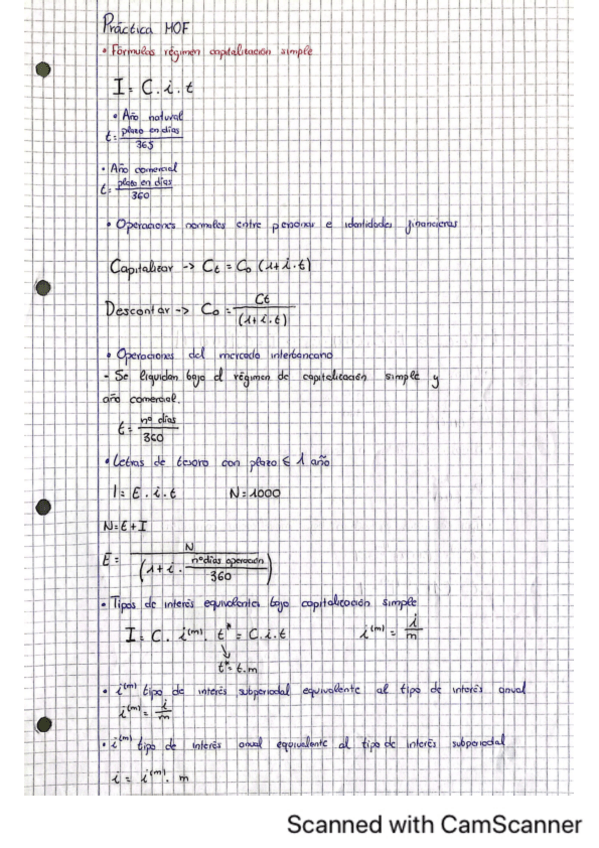 Práctica MOF
• Fórmulas régimen capitalización simple
I = C . i . t
• Año natural
t = plazo en días / 365
• Año comercial
t = plazo en días / 360
• Operaciones normales entre personas e identidades financieras
Capitalizar -> Ct = Co (1 + i . t)
Descontar -> Co = Ct / (1 + i . t)
• Operaciones del mercado interbancario
- Se liquidan bajo el régimen de capitalización simple y
año comercial.
t = nº días / 360
• Letras de tesoro con plazo ≤ 1 año
I = E . i . t N = 1000
N = E + I
E = N / (1 + i . nº días operación / 360)
• Tipos de interés equivalentes bajo capitalización simple
I = C . i^(m) . t* = C . i . t i^(m) = i / m
↓
t* = t . m
• i^(m) tipo de interés subperiodal equivalente al tipo de interés anual
i^(m) = i / m
• i^(m) tipo de interés anual equivalente al tipo de interés subperiodal
i = i^(m) . m
Scanned with CamScanner